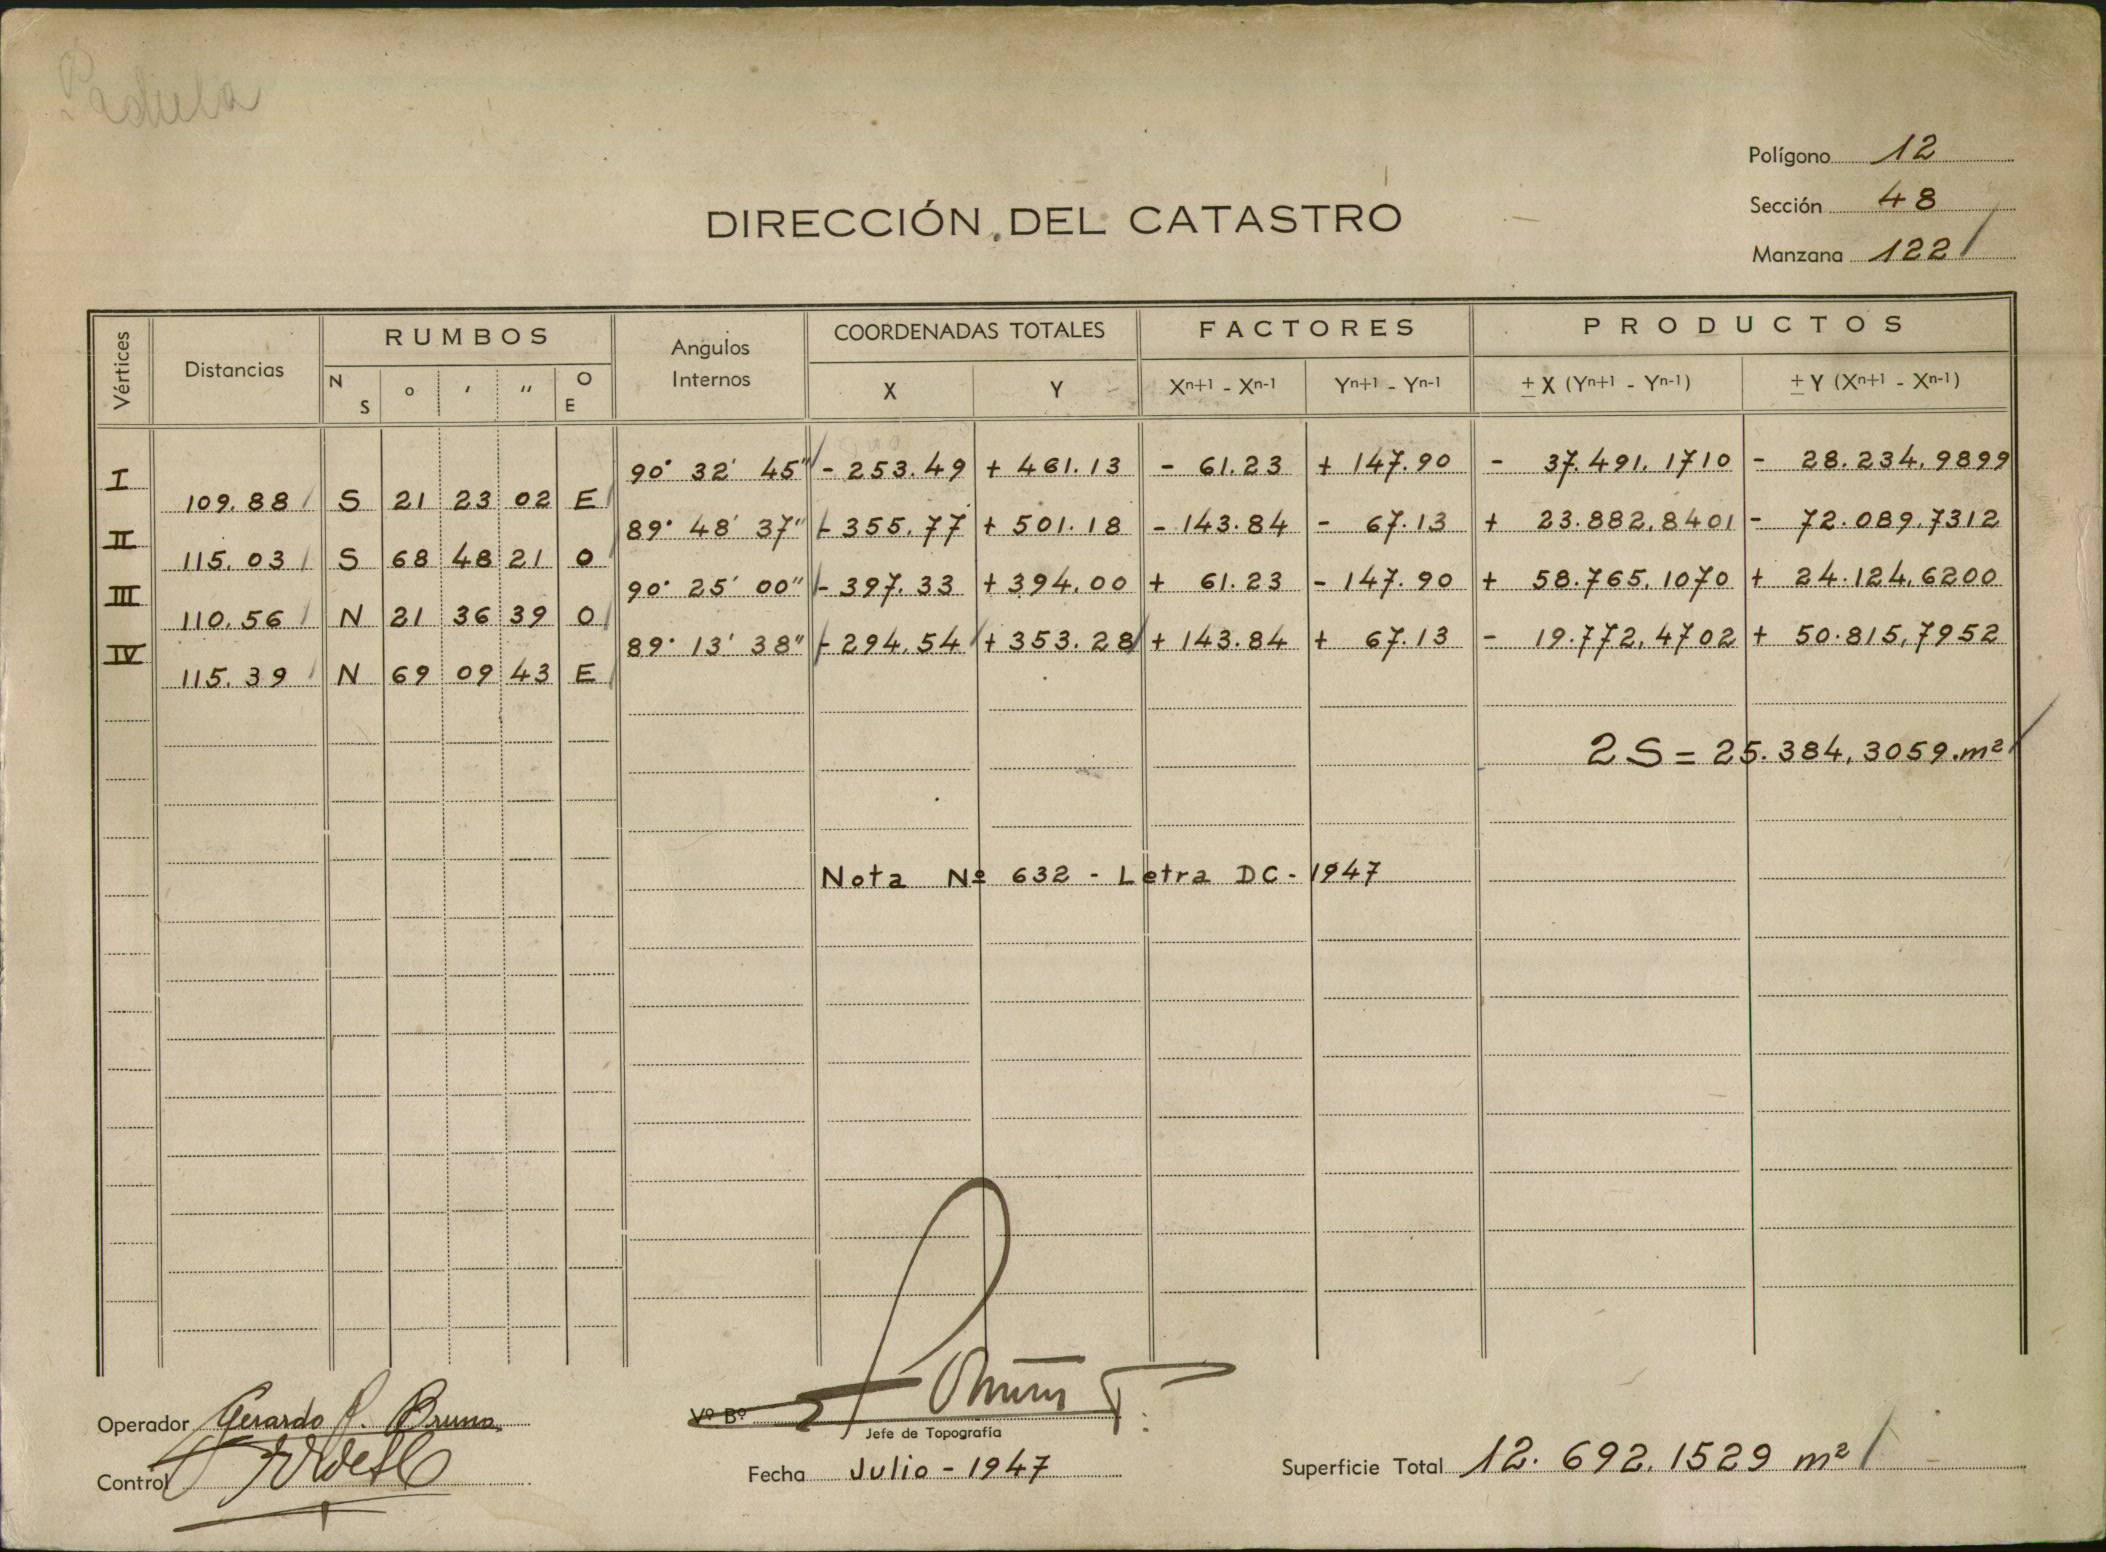 Padula
Polígono 12
Sección 48
Manzana 122
DIRECCIÓN DEL CATASTRO
Vértices Distancias RUMBOS Angulos Internos COORDENADAS TOTALES FACTORES PRODUCTOS
N S ° ′ ″ O E X Y Xn+1 - Xn-1 Yn+1 - Yn-1 ± X (Yn+1 - Yn-1) ± Y (Xn+1 - Xn-1)
I 90° 32′ 45″ - 253.49 + 461.13 - 61.23 + 147.90 - 37.491,1710 - 28.234,9899
109.88 S 21 23 02 E
II 89° 48′ 37″ - 355.77 + 501.18 - 143.84 - 67.13 + 23.882,8401 - 72.089,7312
115.03 S 68 48 21 O
III 90° 25′ 00″ - 397.33 + 394.00 + 61.23 - 147.90 + 58.765,1070 + 24.124,6200
110.56 N 21 36 39 O
IV 89° 13′ 38″ - 294.54 + 353.28 + 143.84 + 67.13 - 19.772,4702 + 50.815,7952
115.39 N 69 09 43 E
2 S = 25.384,3059 m²
Nota Nº 632 - Letra DC - 1947
Operador Gerardo A. Bruno
Vº Bº
Jefe de Topografía
Control
Fecha Julio - 1947
Superficie Total 12.692,1529 m²